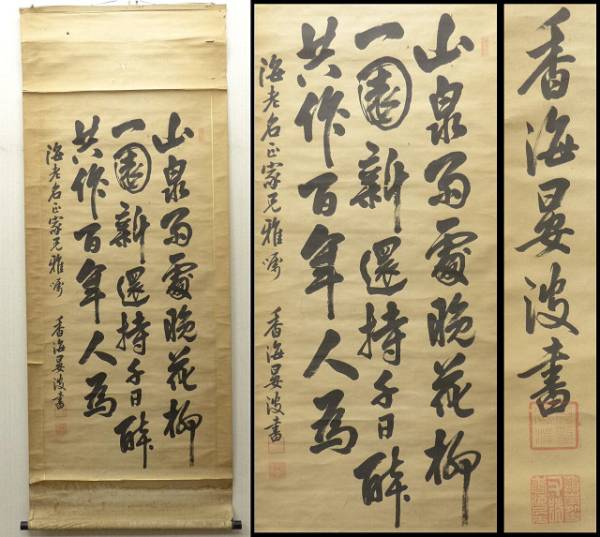 山泉兩處晚花柳
一園新還持千日醉
共作百年人為
海老名正家兄雅嘱 香海晏波書
山泉兩處晚花柳
一園新還持千日醉
共作百年人為
海老名正家兄雅嘱 香海晏波書
香海晏波書